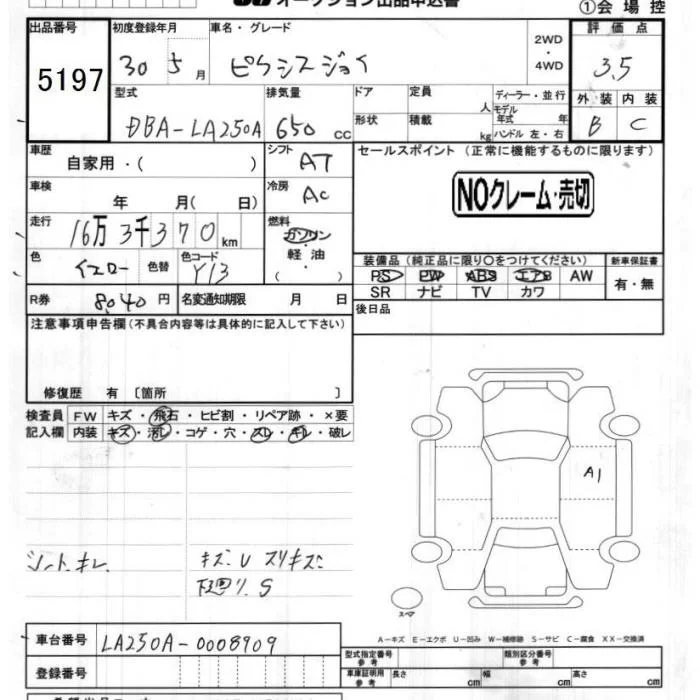 オークション出品申込書
①会場控
出品番号 初度登録年月 車名・グレード 2WD・4WD 評価点
5197 30 5月 ピクシスジョイ 3.5
型式 排気量 ドア 定員 人 ディーラー・並行 外装 内装
DBA-LA250A 650 cc 形状 積載 kg モデル年式 年 ハンドル 左・右 B C
車歴 自家用・( ) シフト AT セールスポイント (正常に機能するものに限ります)
車検 年 月( 日) 冷房 AC NOクレーム・売切
走行 16万3千370km 燃料 ガソリン
色 イエロー 色替 色コード Y13 軽油・( )
装備品 (純正品に限り○をつけてください) 新車保証書
PS PW ABS エアB AW 有・無
SR ナビ TV カワ
R券 8,040円 名変通知期限 月 日 後日品
注意事項申告欄 (不具合内容等は具体的に記入して下さい)
修復歴 有 〔箇所 〕
検査員 FW キズ・飛石・ヒビ割・リペア跡・×要
記入欄 内装 キズ・汚レ・コゲ・穴・スレ・キレ・破レ
A1
シート キレ キズ U スリキズ
下廻り S
スペア
A-キズ E-エクボ U-凹み W-補修跡 S-サビ C-腐食 XX-交換済
車台番号 LA250A-0008909
型式指定番号 参考 類別区分番号 参考
登録番号 車庫証明用 参考 長さ cm 幅 cm 高さ cm